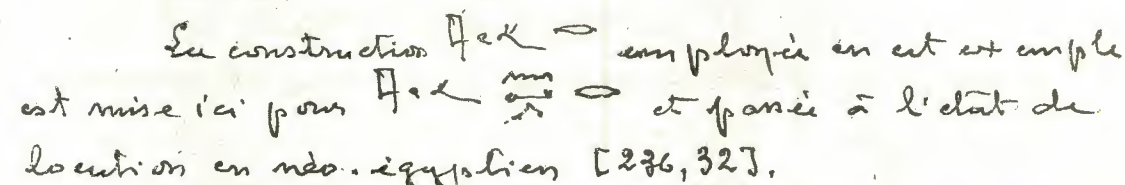 La construction employée en cet exemple
est mise ici pour et passée à l'état de
locution en néo-égyptien [236, 32].